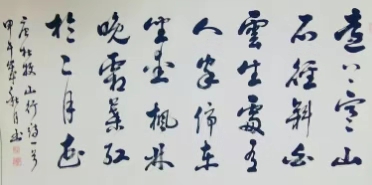 遠上寒山
石徑斜白
雲生處有
人家停車
坐愛楓林
晚霜葉紅
於二月花
唐杜牧山行詩一首
甲午